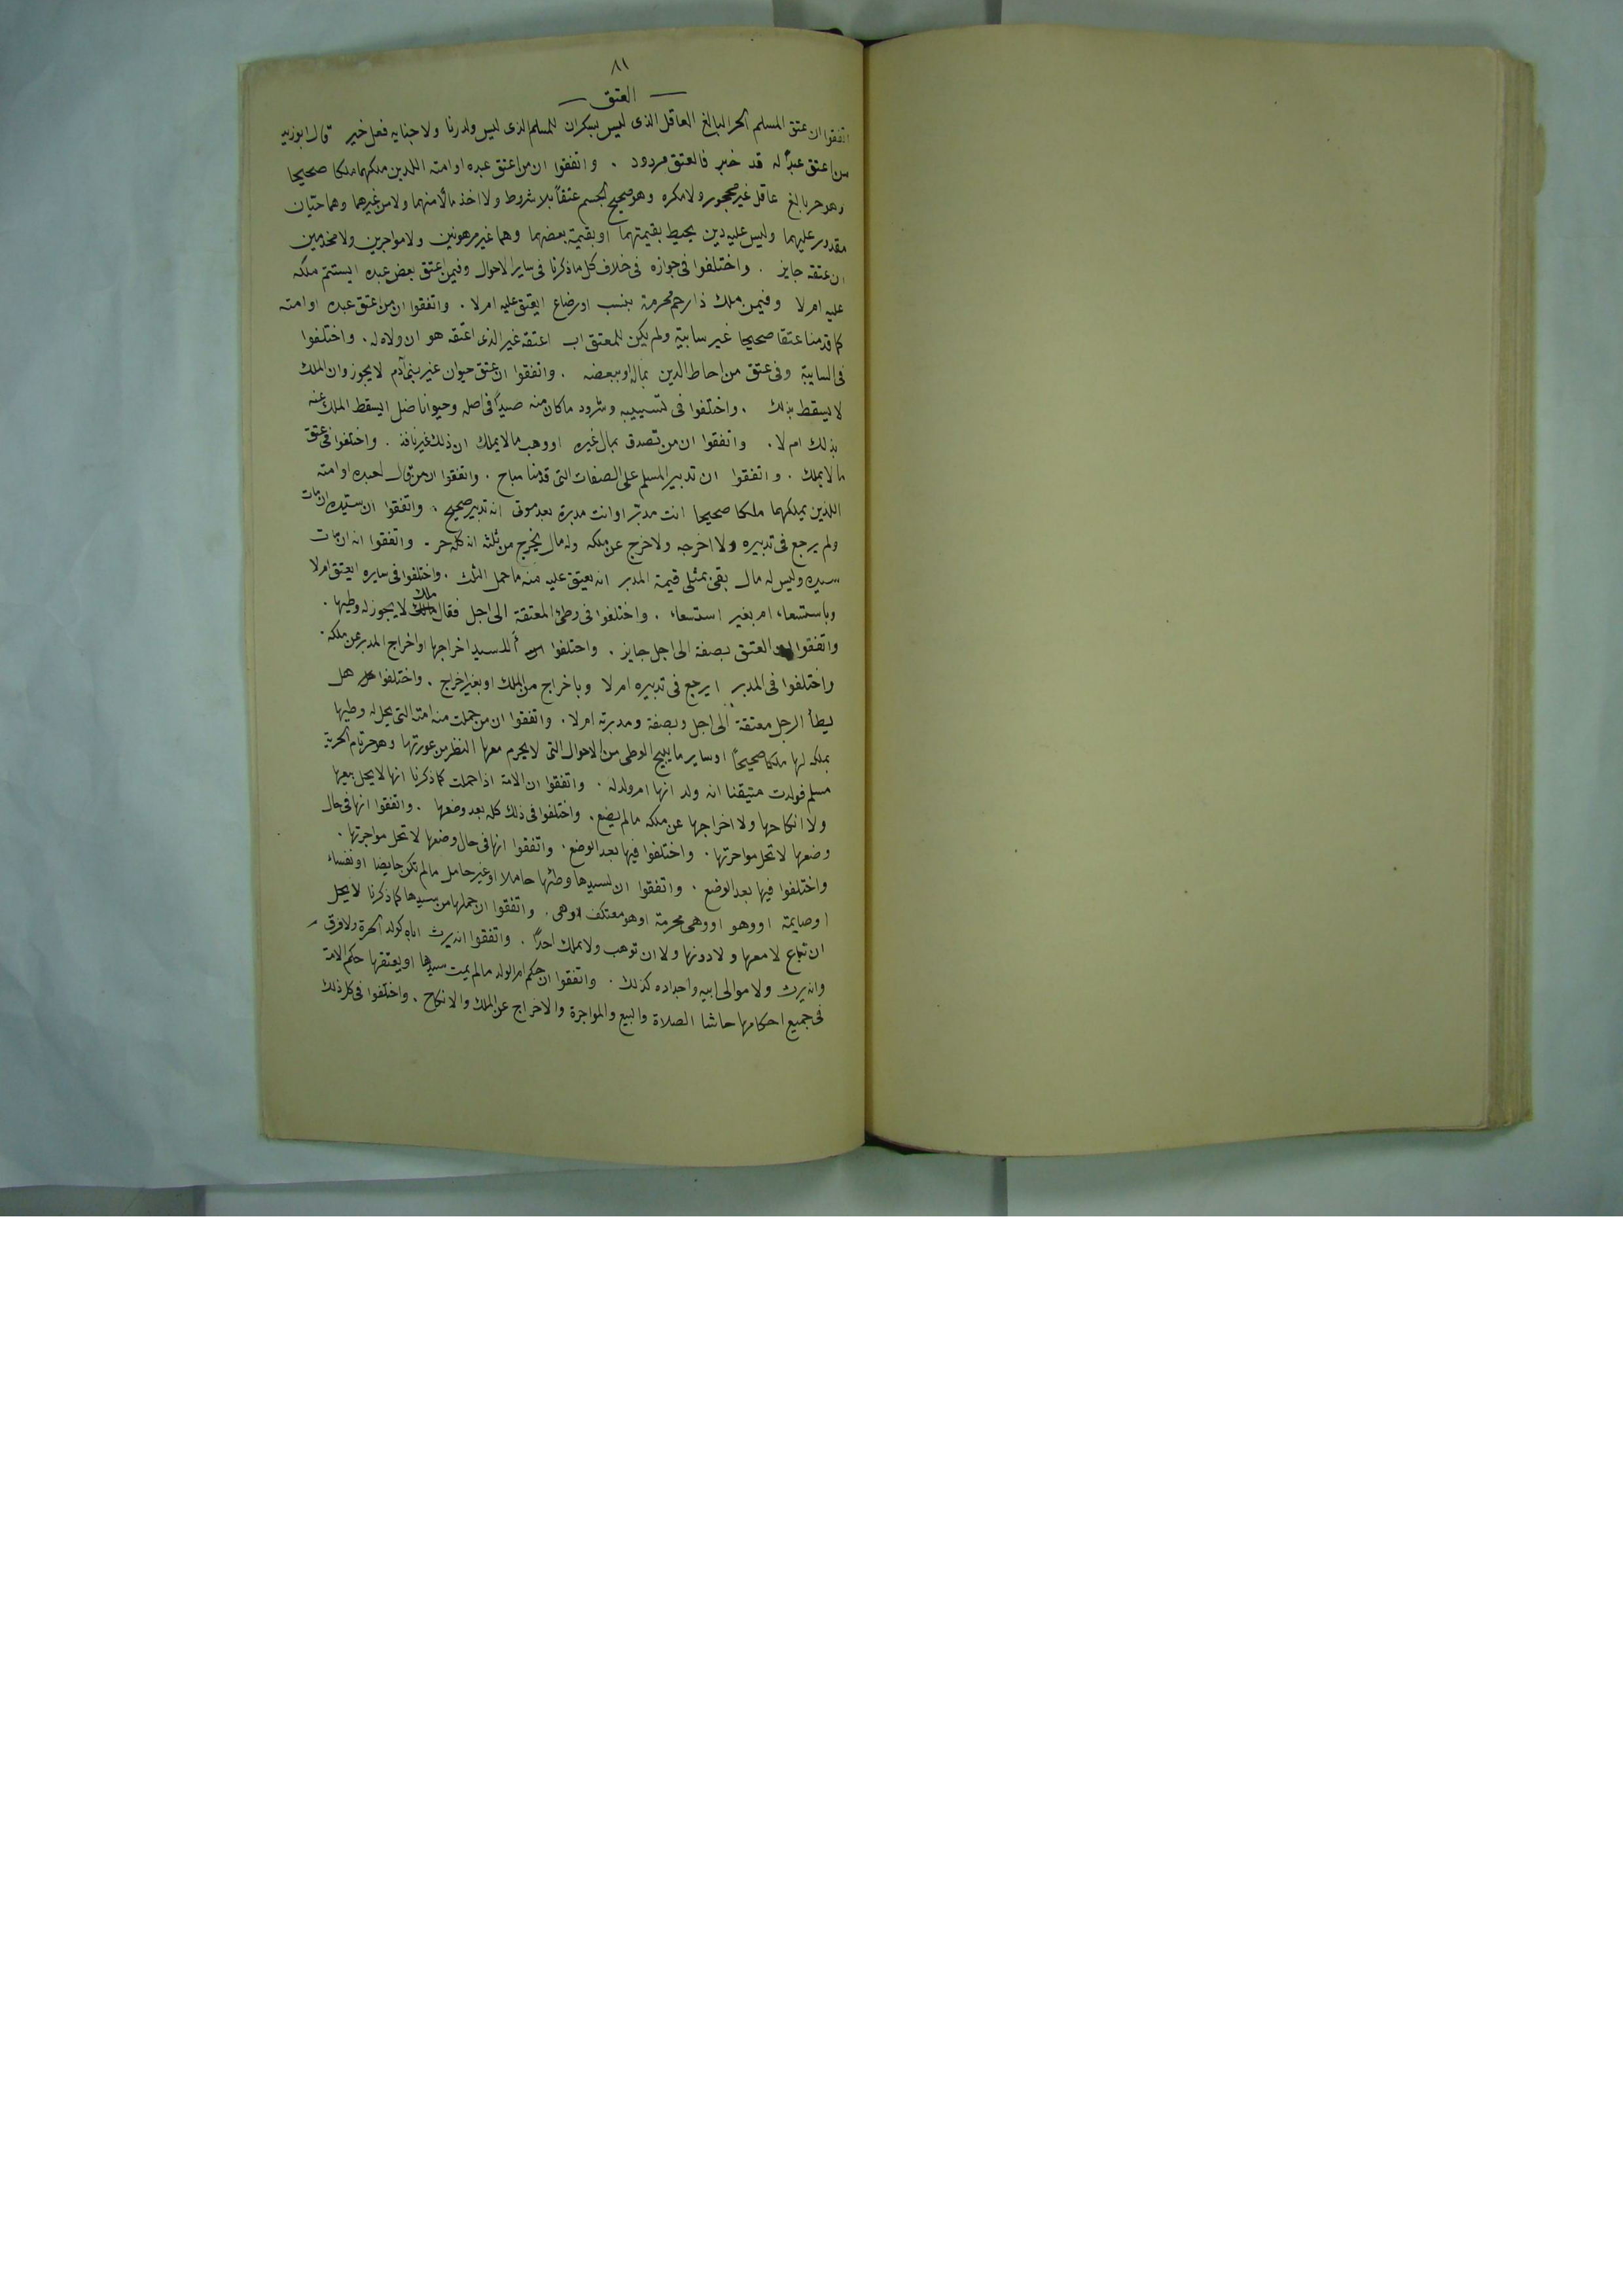 ٨١
— العتق —
اتفقوا ان عتق المسلم الحر البالغ العاقل الذى ليس بسكران للمسلم الذى ليس ولد زنا ولا جنايه فعل خير قال ابو زيد
من اعتق عبدًا له قد خبر فالعتق مردود . واتفقوا ان من اعتق عبده او امته اللذين ملكهما ملكا صحيحا
وهو حر بالغ عاقل غير محجور ولا مكره وهو صحيح الجسم عتقاً بلا شروط ولا اخذ مالٍ منهما ولا من غيرهما وهما حيان
مقدور عليهما وليس عليه دين يحيط بقيمتهما او بقيمة بعضهما وهما غير مرهونين ولا مواجرين ولا مخدمين
ان عتقه جايز . واختلفوا فى جوازه فى خلاف كل ما ذكرنا فى ساير الاحوال وفيمن اعتق بعض عبده ايستتم ملكه
عليه ام لا وفيمن ملك ذا رحم محرمة بنسب او رضاع ايعتق عليه ام لا . واتفقوا ان من اعتق عبده او امته
كما قدمنا عتقا صحيحا غير سايبة ولم يكن للمعتق اب اعتقه غير الذى اعتقه هو ان ولاه له . واختلفوا
فى السايبة وفى عتق من احاط الدين بماله او ببعضه . واتفقوا ان عتق حيوان غير بنى آدم لا يجوز وان الملك
لا يسقط بذلك . واختلفوا فى تسييبه وشرود ما كان منه صيداً فى اصله وحيوانا ضل ايسقط الملك عنه
بذلك ام لا . واتفقوا ان من تصدق بمال غيره او وهب ما لا يملك ان ذلك غير نافذ . واختلفوا فى عتق
ما لا يملك . واتفقوا ان تدبير المسلم على الصفات التى قدمنا مباح . واتفقوا ان من قال لعبده او امته
اللذين يملكهما ملكا صحيحا انت مدبر او انت مدبرة بعد موتى انه تدبير صحيح . واتفقوا ان سيده ان مات
ولم يرجع فى تدبيره ولا اخرجه ولا خرج عن ملكه وله مال يخرج من ثلثه انه كله حر . واتفقوا انه ان مات
سيده وليس له مال بقى بمثلى قيمة المدبر انه يعتق عليه منه ما حمل الثلث . واختلفوا فى سايره ايعتق ام لا
وباستسعاء ام بغير استسعاء . واختلفوا فى وطئ المعتقة الى اجل فقال مالك لا يجوز له وطيها .
واتفقوا ان العتق بصفة الى اجل جايز . واختلفوا أللسيد اخراجها او اخراج المدبر عن ملكه .
واختلفوا فى المدبر ايرجع فى تدبيره ام لا وباخراج من الملك او بغير اخراج . واختلفوا هل
يطأ الرجل معتقة الى اجل وبصفة ومدبرته ام لا . واتفقوا ان من حملت منه امته التى يحل له وطيها
بملكه لها ملكا صحيحًا او ساير ما يبيح الوطى من الاحوال التى لا يحرم معها النظر من عورتها وهو حر تام الحرية
مسلم فولدت متيقنا انه ولد انها ام ولد له . واتفقوا ان الامة اذا حملت كما ذكرنا انها لا يحل بيعها
ولا انكاحها ولا اخراجها عن ملكه ما لم يضع . واختلفوا فى ذلك كله بعد وضعها . واتفقوا انها فى حال
وضعها لا تحل مواجرتها . واختلفوا فيها بعد الوضع . واتفقوا انها فى حال وضعها لا تحل مواجرتها .
واختلفوا فيها بعد الوضع . واتفقوا ان لسيدها وطئها حاملا او غير حامل ما لم تكن حايضا او نفساء
او صايمة او وهو او وهى محرمة او هو معتكف او هى . واتفقوا ان حملها من سيدها كما ذكرنا لا يحل
ان تباع لا معها ولا دونها ولا ان توهب ولا يملك احدًا . واتفقوا انه يرث اباه كولد الحرة ولا فرق
وانه يرث ولا موالى ابيه واجداده كذلك . واتفقوا ان حكم ام الولد ما لم يمت سيدها او يعتقها حكم الامة
فى جميع احكامها حاشا الصلاة والبيع والمواجرة والاخراج عن الملك والانكاح . واختلفوا فى كل ذلك